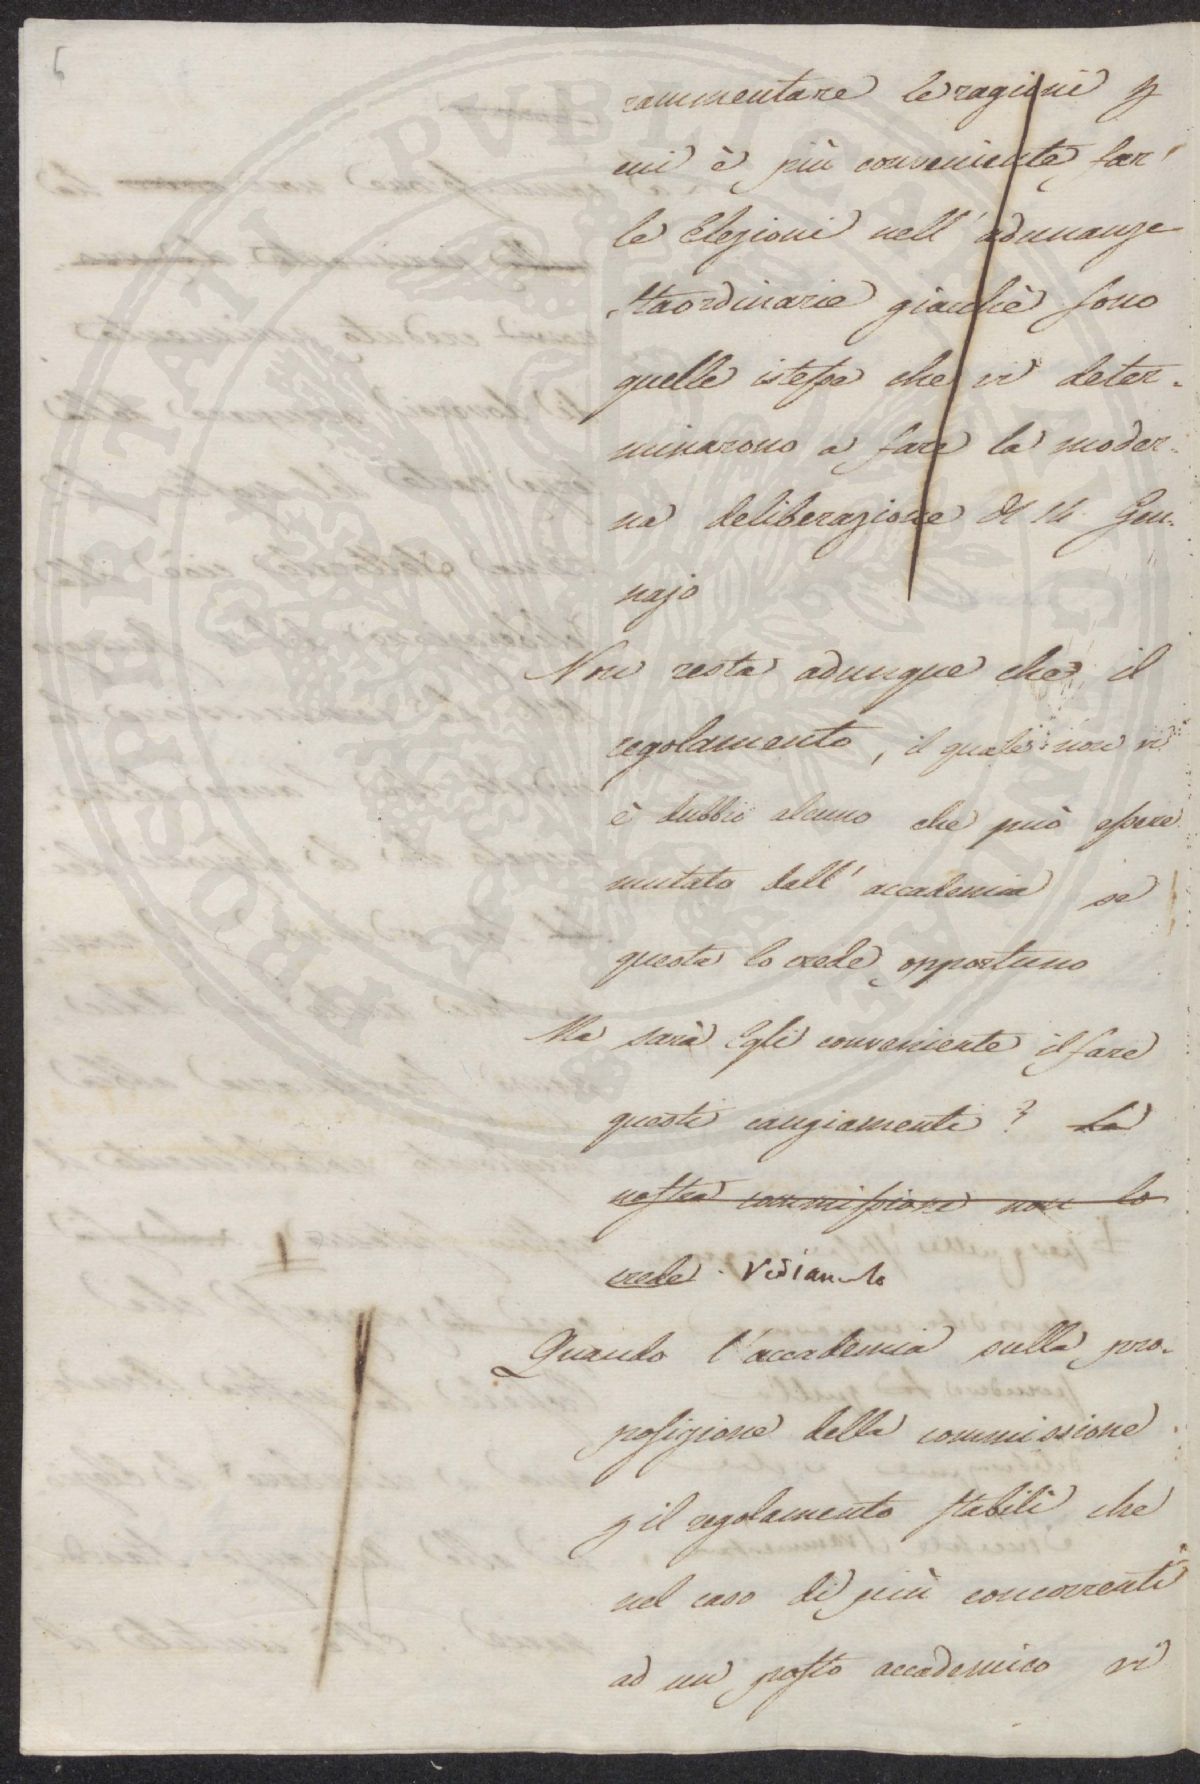 6
rammentare le ragioni p
cui è più conveniente far
le Elezioni nell' adunanze
straordinarie giacchè sono
quelle istesse che vi deter-
minarono a fare la moder-
na deliberazione di 14 Gen-
najo
Non resta adunque che il
regolamento, il quale non vi
è dubbio alcuno che può essere
mutato dall' accademia se
questa lo crede opportuno
Ma sarà Egli conveniente il fare
questi cangiamenti? La
nostra commissione non lo
crede. Vediamolo
Quando l'accademia sulla pro-
posizione della commissione
p il regolamento stabilì che
nel caso di più concorrenti
ad un posto accademico vi
PROSPERITATI PUBLICAE AUGENDAE